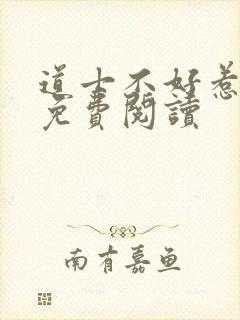 道士不好惹
免費閱讀
南有嘉鱼